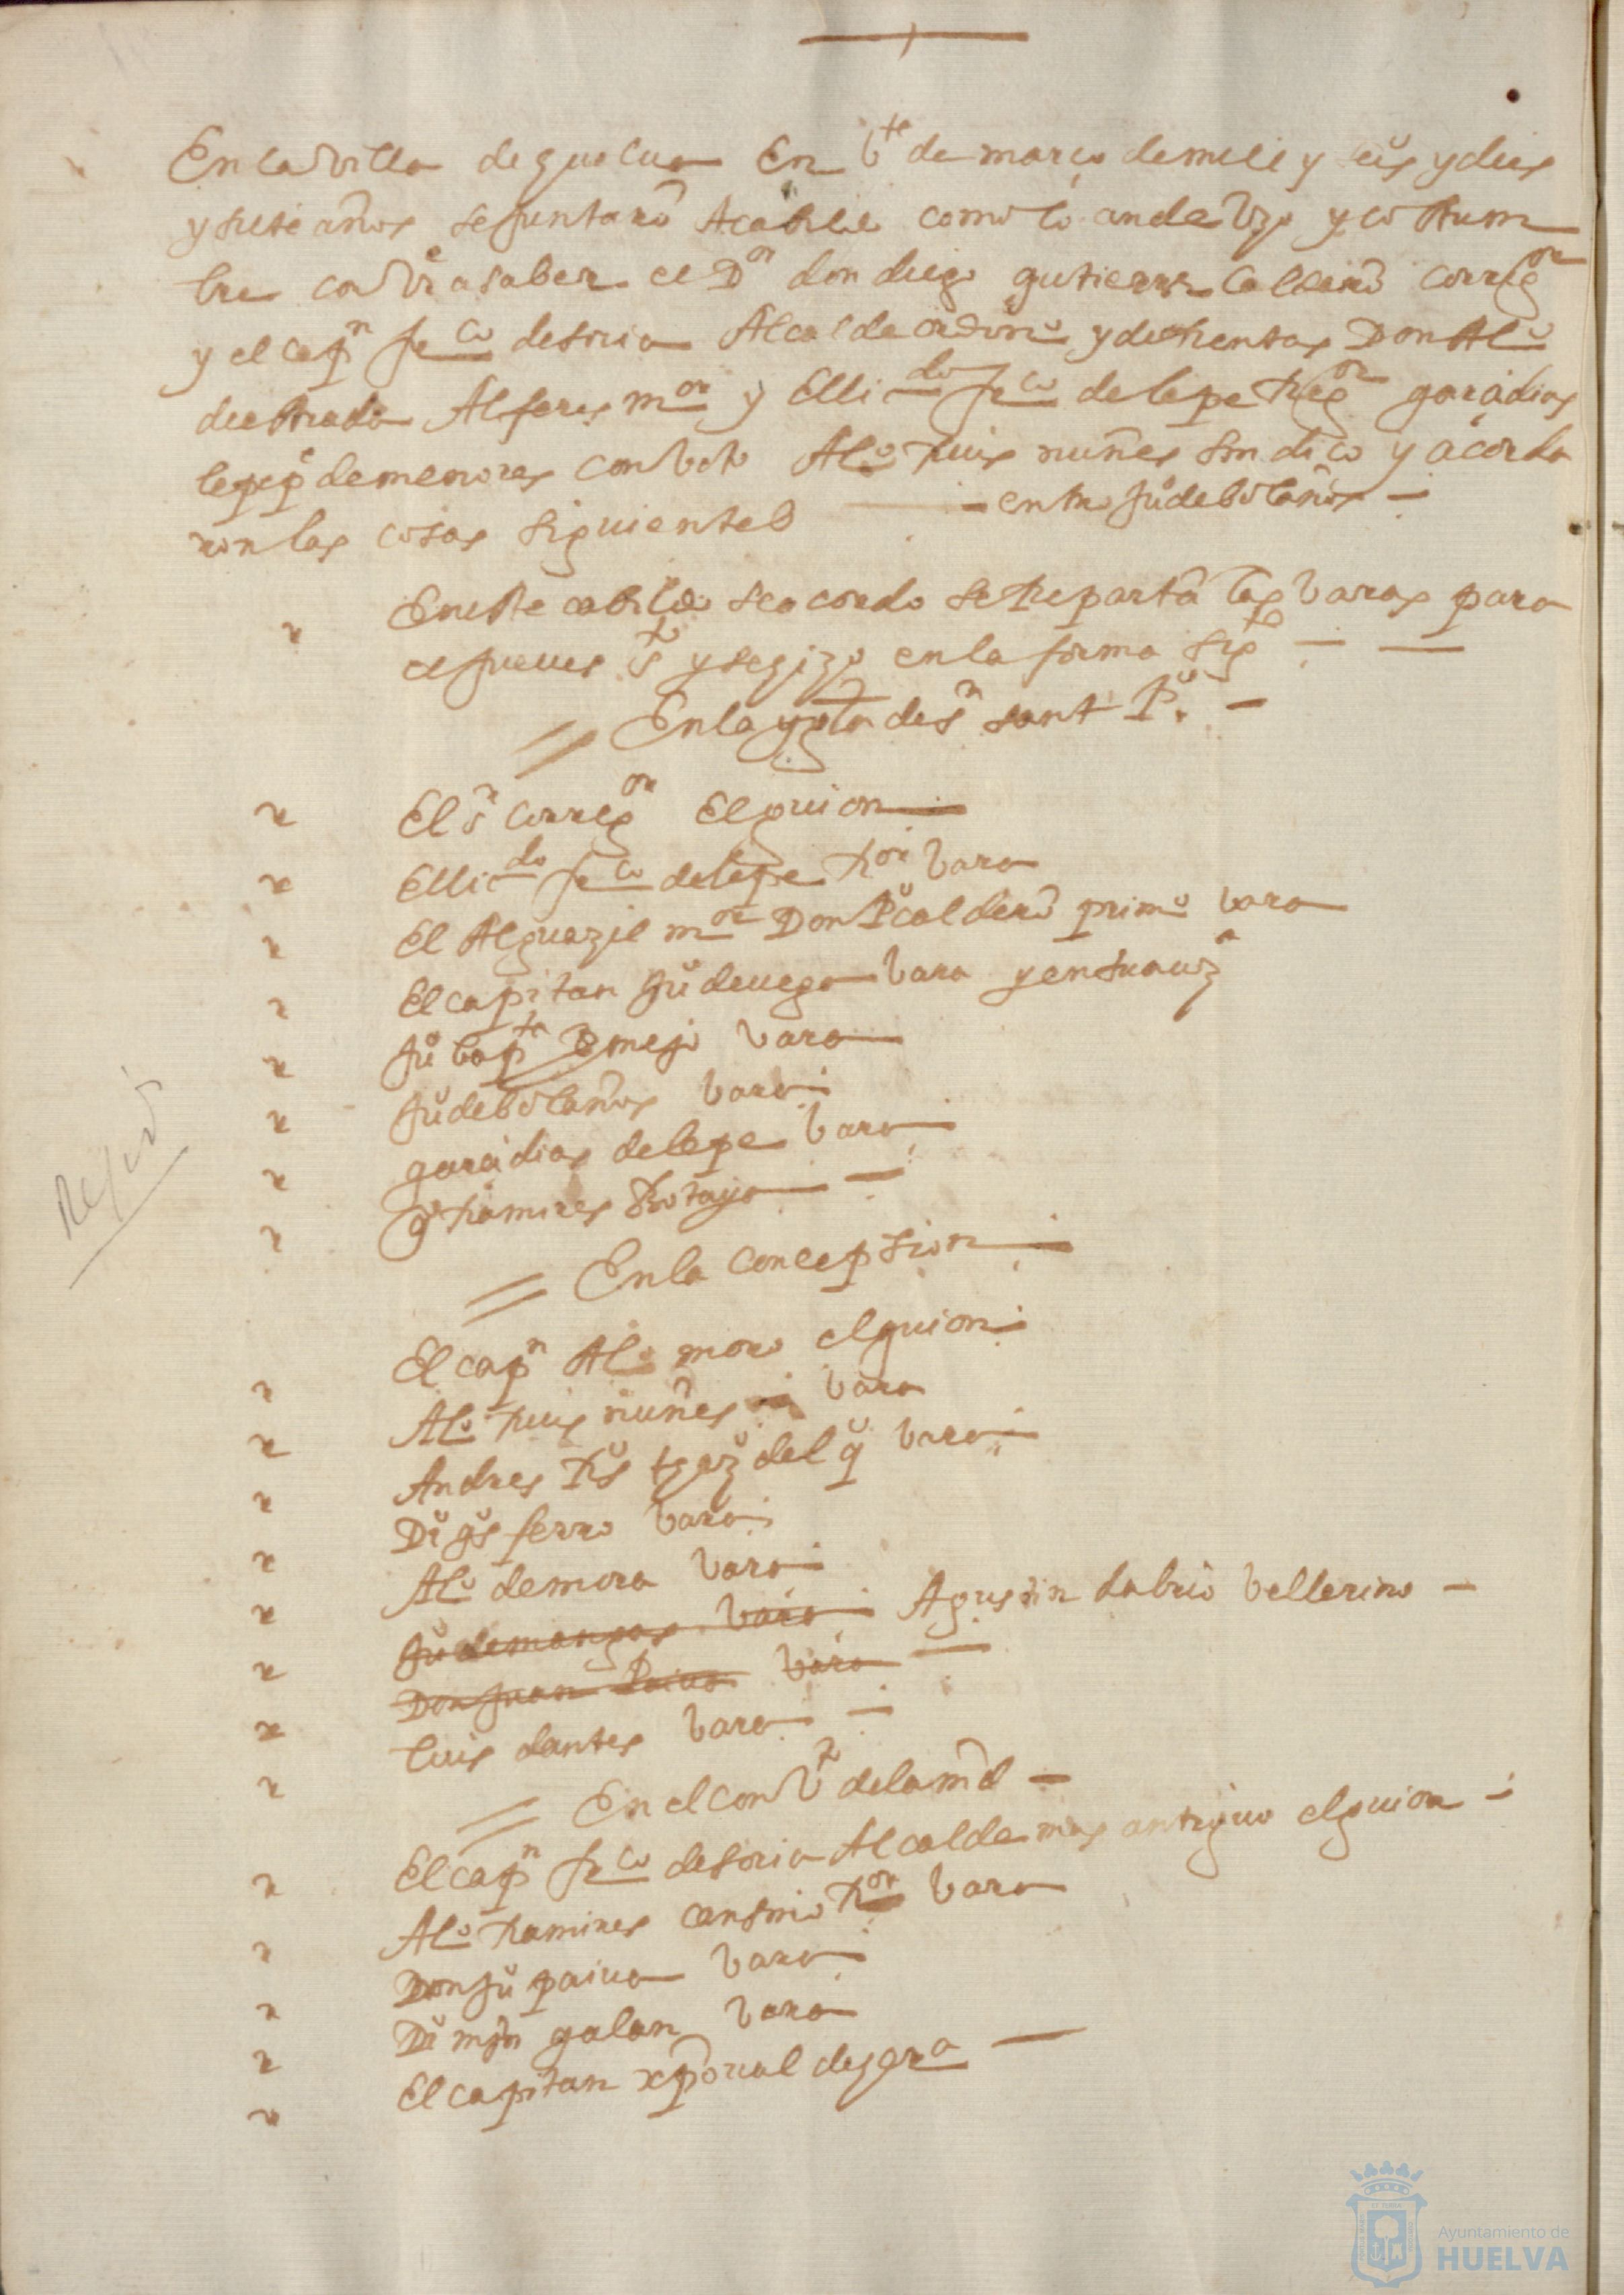 En la villa de guelua En bte de março de mill y seis y dies
y siete años se juntarō A cabildo como lo an de vso y costum
bre conviene a saber el Dor don diego gutierres calderō corregor
y el capn frco de soria Alcalde ordino y de sientos Don Alo
de estrada Alferes mor y El lido frco de lepe Regor garcidias
lepe pe de menores con voto Alo Ruis nuñes sindico y acorda
ron las cosas siguientes — entro juo de bolaños —
En este cabildo se acordo se Repartā las varas para
el jueues sto y se hizo en la forma sigte —
En la yglā de sr sant Po —
El sr corregor El guion
El lido frco de lepe Ror vara
El Alguazil mor Don Po calderō primo vara
El capitan juo de uega vara
juo bapta Bmejo vara
juo de bolaños vara
garcidias de lepe vara
go Ramires Botayo —
En la concepsion
El capn Alo moro el guion
Alo Ruis nuñes vara
Andres Rs del vara
Do gs ferro vara
Alo de mora vara
juo de mongas vara Agustin dabrio vellerino —
Don juan Paiua vara —
luis dantes vara —
En el convto de la md —
El capn frco de soria Alcalde mas antiguo el guion —
Alo Ramires censino Ror vara
Don juo paiua vara
Do min galan vara
El capitan xpoual de
Ayuntamiento de
HUELVA